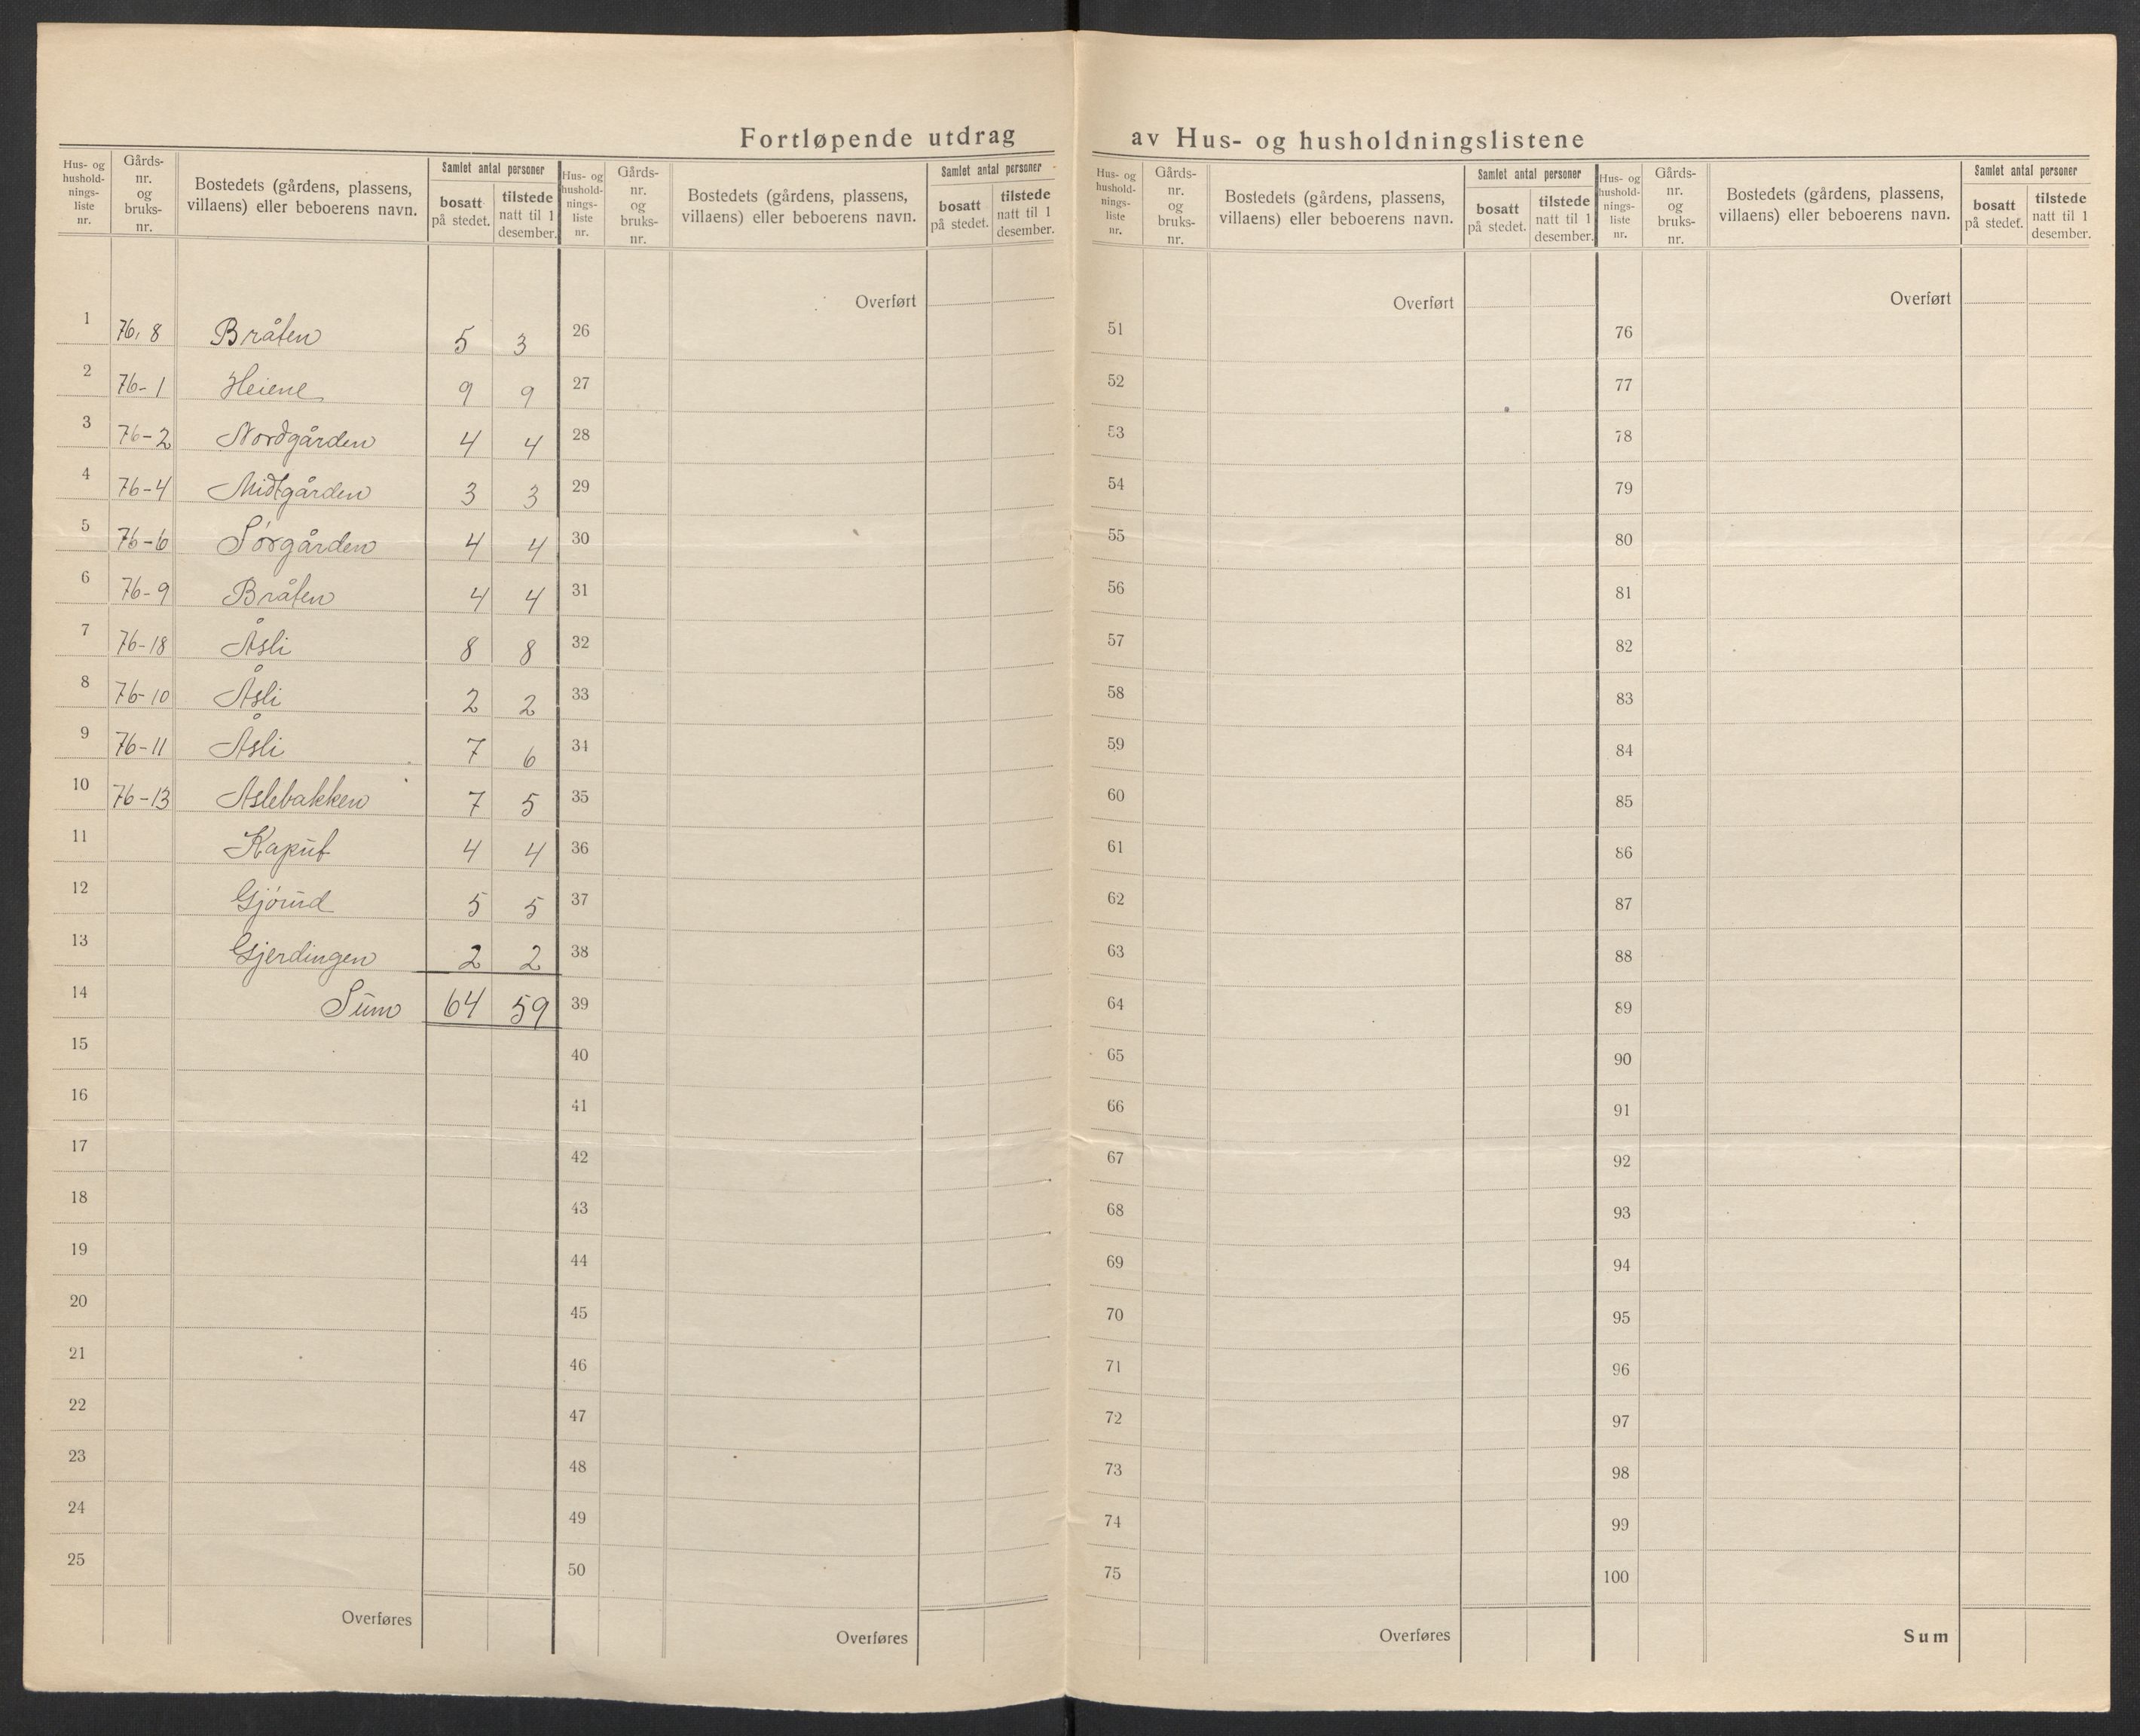 Fortløpende utdrag av Hus- og husholdningslistene
Hus- og hushold- nings- liste nr. | Gårds- nr. og bruks- nr. | Bostedets (gårdens, plassens, villaens) eller beboerens navn. | Samlet antal personer | bosatt på stedet. | tilstede natt til 1 desember.
Hus- og hushold- nings- liste nr. | Gårds- nr. og bruks- nr. | Bostedets (gårdens, plassens, villaens) eller beboerens navn. | Samlet antal personer | bosatt på stedet. | tilstede natt til 1 desember.
Hus- og hushold- nings- liste nr. | Gårds- nr. og bruks- nr. | Bostedets (gårdens, plassens, villaens) eller beboerens navn. | Samlet antal personer | bosatt på stedet. | tilstede natt til 1 desember.
Hus- og hushold- nings- liste nr. | Gårds- nr. og bruks- nr. | Bostedets (gårdens, plassens, villaens) eller beboerens navn. | Samlet antal personer | bosatt på stedet. | tilstede natt til 1 desember.
1 76, 8 Bråten 5 3
2 76-1 Heiene 9 9
3 76-2 Nordgården 4 4
4 76-4 Midtgården 3 3
5 76-6 Sørgården 4 4
6 76-9 Bråten 4 4
7 76-18 Åsli 8 8
8 76-10 Åsli 2 2
9 76-11 Åsli 7 6
10 76-13 Aslebakken 7 5
11 Kaput 4 4
12 Gjörud 5 5
13 Gjerdingen 2 2
14 Sum 64 59
15
16
17
18
19
20
21
22
23
24
25
Overføres
Overført
26
27
28
29
30
31
32
33
34
35
36
37
38
39
40
41
42
43
44
45
46
47
48
49
50
Overføres
Overført
51
52
53
54
55
56
57
58
59
60
61
62
63
64
65
66
67
68
69
70
71
72
73
74
75
Overføres
Overført
76
77
78
79
80
81
82
83
84
85
86
87
88
89
90
91
92
93
94
95
96
97
98
99
100
Sum